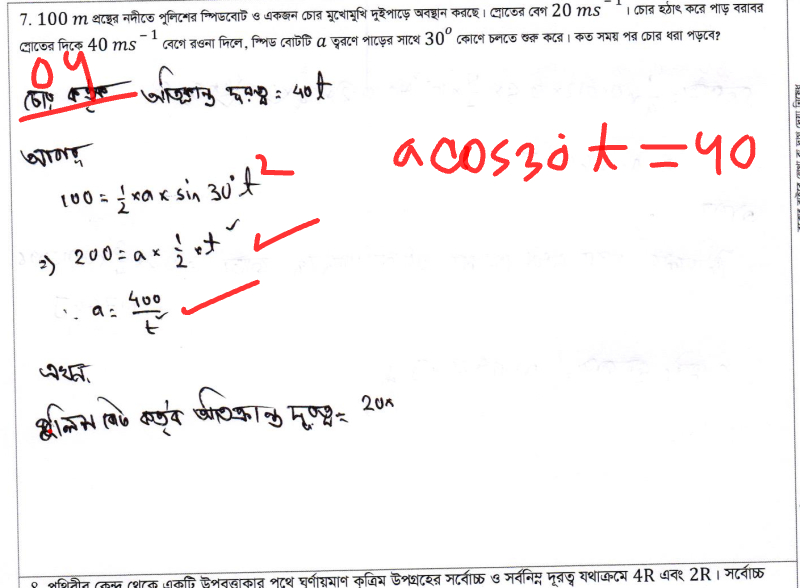 7. 100 m প্রস্থের নদীতে পুলিশের স্পিডবোট ও একজন চোর মুখোমুখি দুইপাড়ে অবস্থান করছে। স্রোতের বেগ 20 ms⁻¹। চোর হঠাৎ করে পাড় বরাবর
স্রোতের দিকে 40 ms⁻¹ বেগে রওনা দিলে, স্পিড বোটটি a ত্বরণে পাড়ের সাথে 30° কোণে চলতে শুরু করে। কত সময় পর চোর ধরা পড়বে?
04
চোর কর্তৃক অতিক্রান্ত দূরত্ব = 40t
a cos30° t = 40
আবার
100 = ½ × a × sin 30° t²
⇒ 200 = a × ½ × t² ✓
∴ a = 400/t² ✓
এখন,
পুলিশ বোট কর্তৃক অতিক্রান্ত দূরত্ব = 20×
8. পৃথিবীর কেন্দ্র থেকে একটি উপবৃত্তাকার পথে ঘূর্ণায়মাণ কৃত্রিম উপগ্রহের সর্বোচ্চ ও সর্বনিম্ন দূরত্ব যথাক্রমে 4R এবং 2R। সর্বোচ্চ